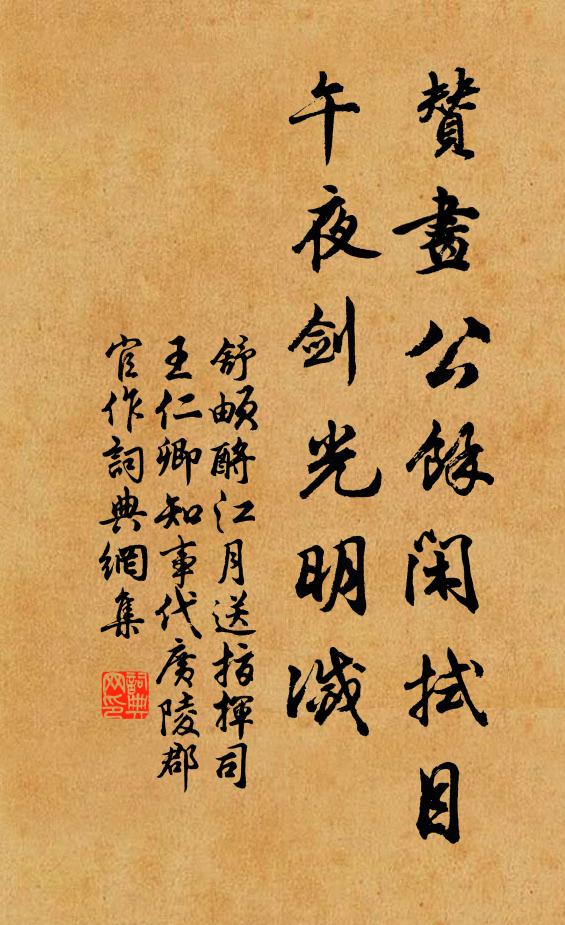 贊畫公餘閑拭目
午夜剑光明滅
舒頔酹江月送指揮司
王仁卿知事代廣陵郡
官作詞典網集
詞典网印